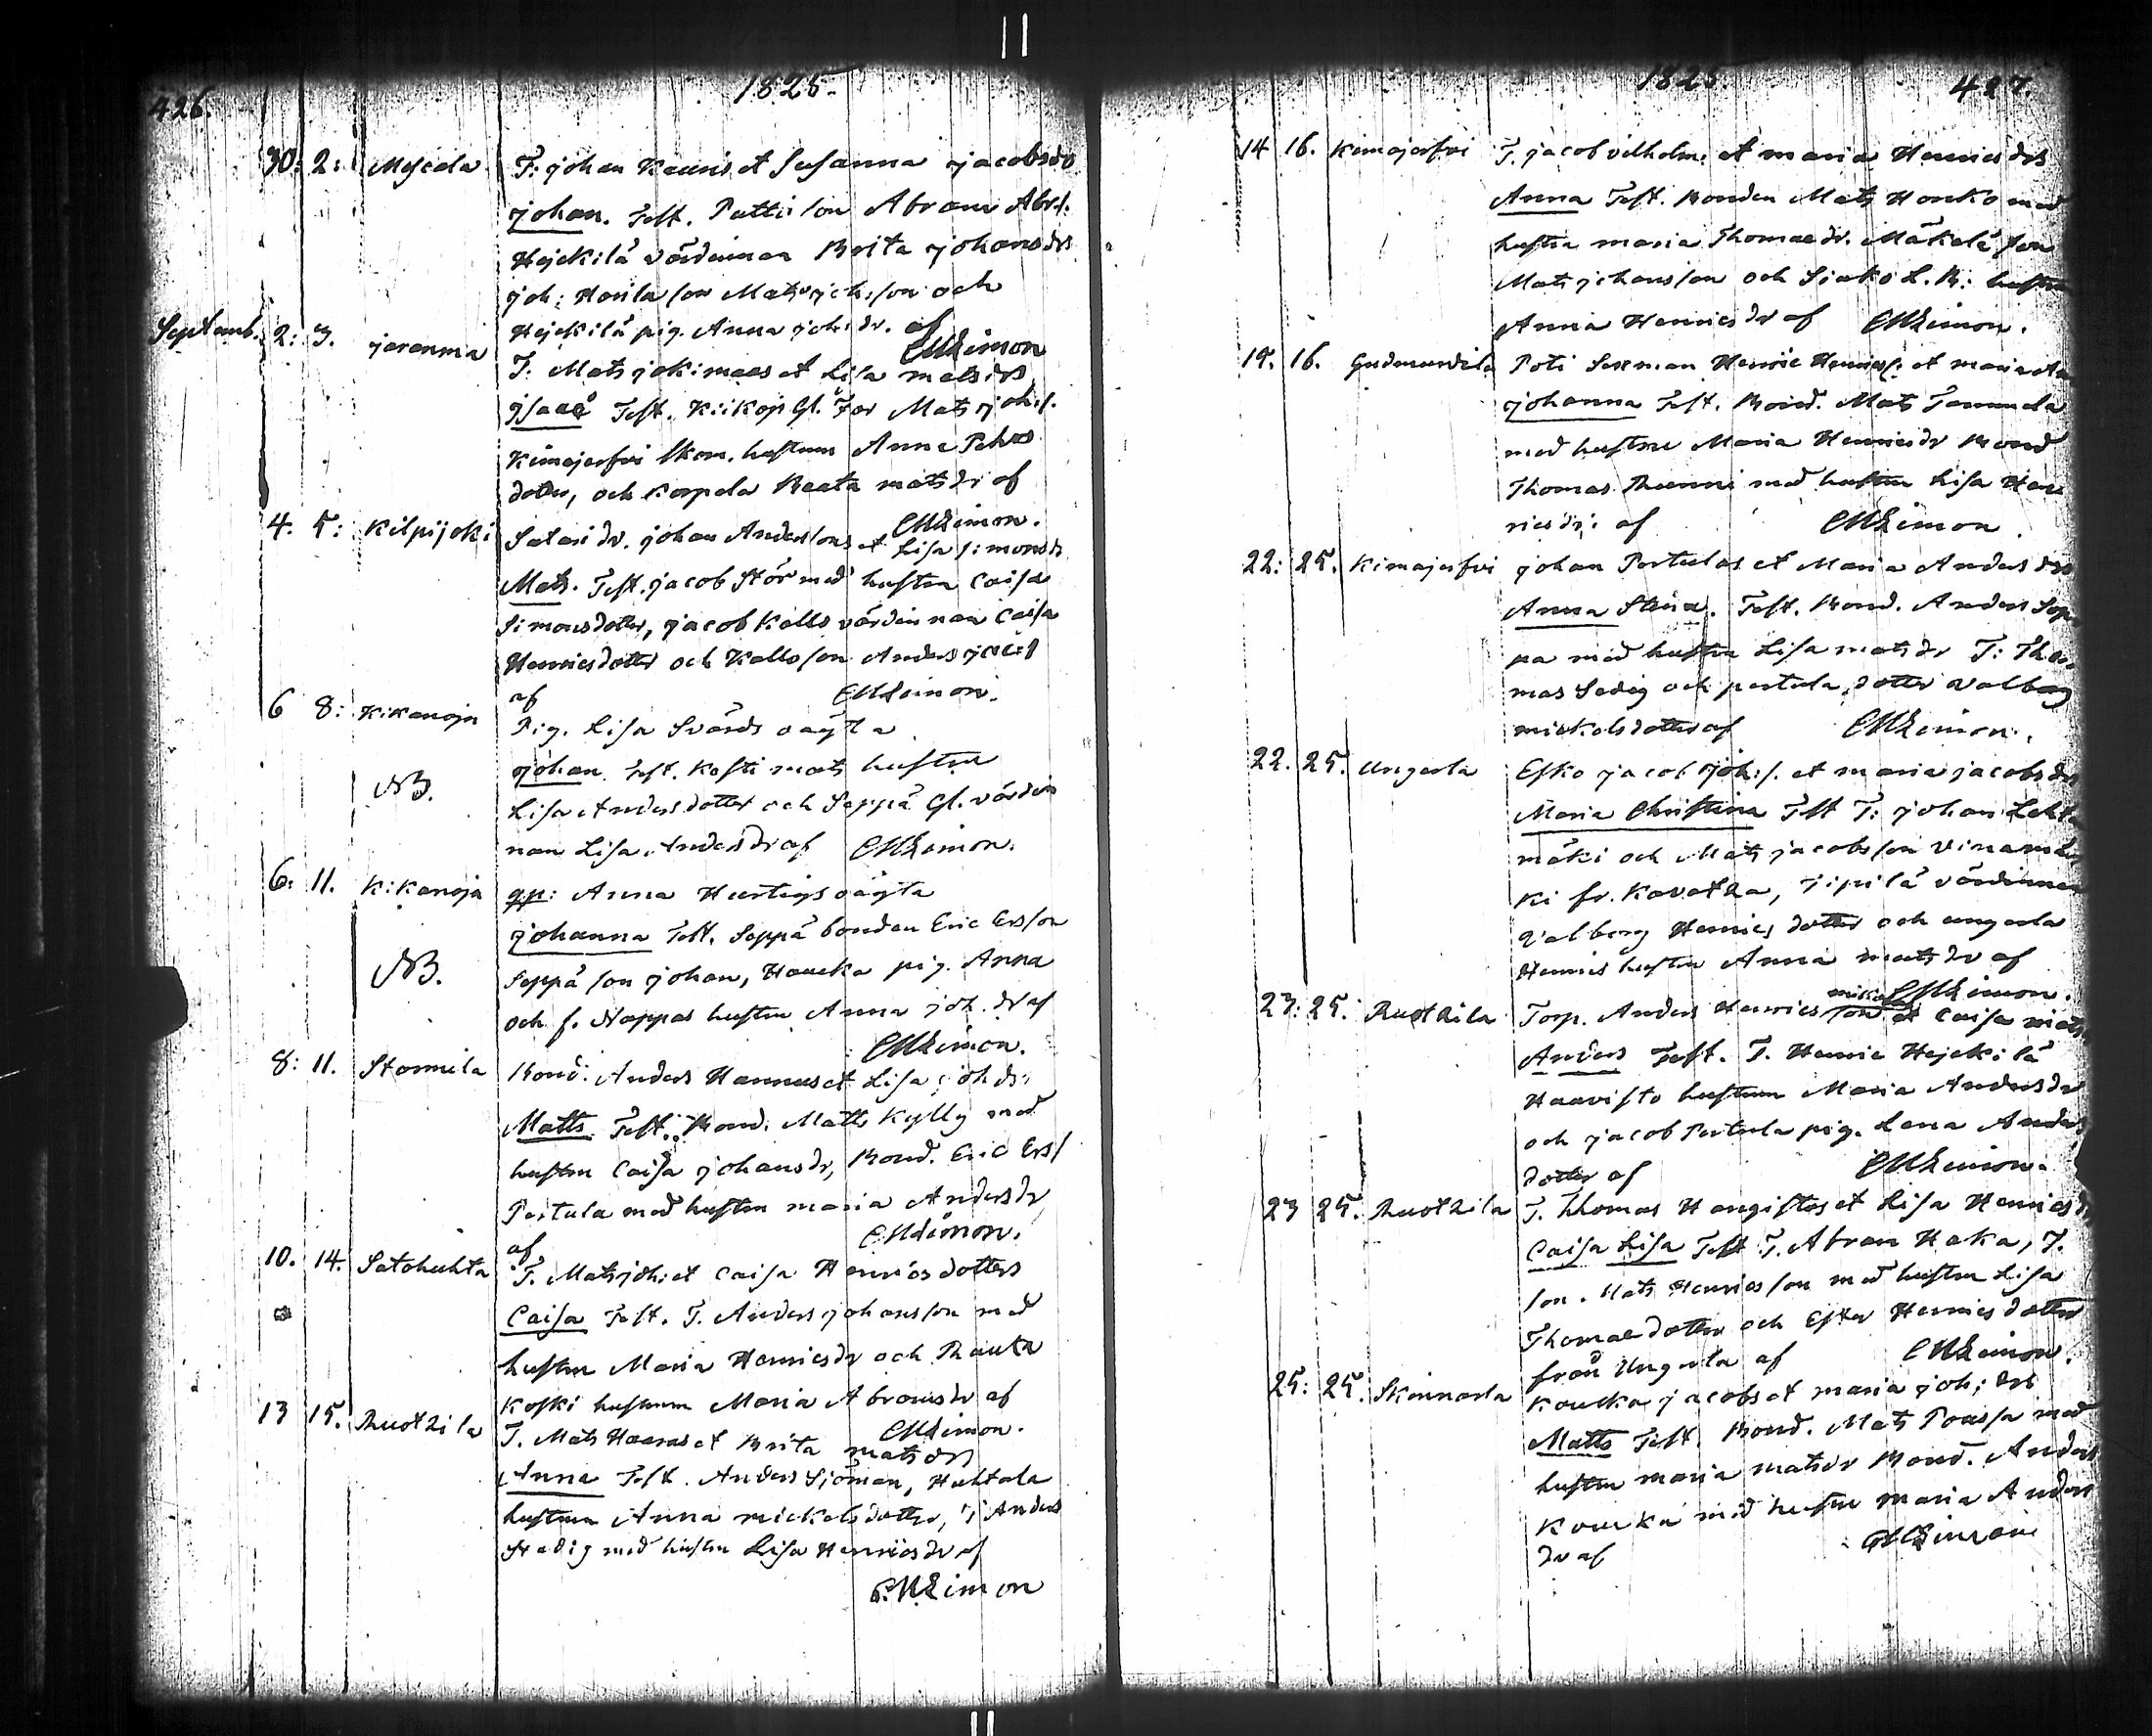 426. 1825.
30: 2: T: johan et Susanna jacobsdr
johan. Test. son Abram Abr.s.
Hejckilä värdinnan Brita johansdr
joh: son Mats joh:son och
Hejckilä pig. Anna joh:dr. af
CMLimon
Septemb. 2: 3. T: Mats jokimaas et Lisa matsdrs
jsaac Test. Gl. Far Mats joh:s.
Kimajerfvi hustrun Anna Pehrs
dotter, och Korpela Beata matsdr af
CMLimon.
4. 5: Kilpijoki dr. johan Anderssons et Lisa simonsdr
Mats. Test. jacob Stör med hustru Caisa
Simonsdotter, jacob Kallo värdinnan Caisa
Henricsdotter och Kallo son Anders
af CMLimon.
6 8: Kikanoja Pig. Lisa Svärds oägta
johan Test. mats hustru
NB.
Lisa Andersdotter och Seppä Gl. värdin
nan Lisa Andersdr af CMLimon.
6. 11. Kikanoja qp: Anna Hurtigs oägta
johanna Test. Seppä bonden Eric Ersson
NB.
Seppä son johan, Haucka pig. Anna
och f. Nappas hustru Anna joh.dr af
CMLimon.
8: 11. Stormila Bond. Anders Hannus et Lisa joh.dr.
Matts Test. Bond. Matts Kylly med
hustru Caisa johansdr, Bond. Eric Ers/
Pertula med hustru maria Andersdr
af CMLimon.
10. 14. Satohuhta T. Mats joh: et Caisa Henricsdotters
Caisa Test. T. Anders johansson med
hustru Maria Henricsdr och Rauta
koski hustrun Maria Abramsdr af
CMLimon.
13 15. Ruotzila T. Mats Haaras et Brita matsdrs
Anna Test. Anders Sjöman, Huhtala
hustrun Anna mickelsdotter, Anders
Stadig med hustru Lisa Henricsdr af
CMLimon
1825. 427.
14 16. Kimajerfvi T. jacob vilhelm: et maria Henricsdrs
Anna Test. Bonden Mats Honko med
hustru maria Thomaedr. Mäkelä son
Mats johansson och hustru
Anna Henricsdr af CMLimon.
14. 16. Gudmundila Henric Henrics: et maria
johanna Test. Bond. Mats Tammela
med hustru Maria Henricsdr Bond
Thomas med hustru Lisa Hen
ricsdr: af CMLimon.
22: 25. Kimajerfvi johan Pertulas et Maria Andersdrs
Anna Stina. Test. Bond. Anders Sep
pa med hustru Lisa matsdr T: Tho
mas Sedig och pertula dotter valborg
mickelsdotter af CMLimon.
22. 25. Ungerla Esko jacob joh:s. et maria jacobsdrs
Maria Christina Test T: johan Lehti
mäki och Mats jacobsson
ki fr. Kavatka, jipilä värdinnan
valborg Henricsdotter och ungerla
Henrics hustru Anna matsdr af
CMLimon.
23: 25. Ruotzila Torp. Anders Henricsson et Caisa mats
Anders Test. T. Henric Hejckilä
Haavisto hustrun Maria Andersdr
och jacob Pertula pig. Lena Anders
dotter af CMLimon.
23 25. Ruotzila T. Thomas Hangistos et Lisa Henricsdr
Caisa Lisa Test T. Abram Haka, T.
son. Mats Henricsson med hustru Lisa
Thomaedotter och Ester Henricsdotter
från Ungerla af CMLimon.
25: 25. Skinnarla Koucka jacobs et maria joh: drs
Matts Test. Bond. Mats Poussa med
hustru maria matsdr Bond. Anders
Koucka med hustru maria Anders
dr af CMLimon